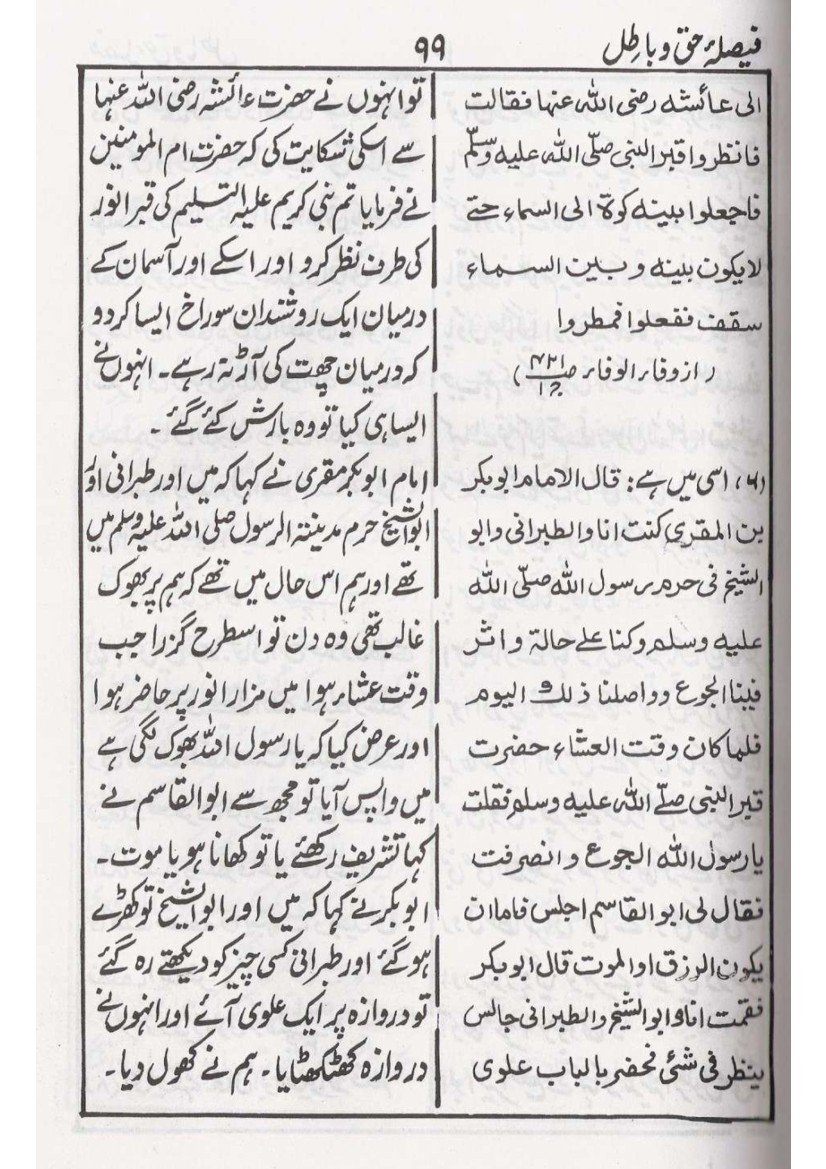 فیصلۂ حق و باطل
۹۹
الی عائشہ رضی اللہ عنہا فقالت
فانظروا قبر النبی صلّی اللہ علیہ وسلّم
فاجعلوا بینہ کوۃ الی السماء حتے
لایکون بینہ و بین السماء
سقف ففعلوا فمطروا
(از وفاء الوفاء ص ۴۲۱)
(۶) اسی میں ہے: قال الامام ابو بکر
بن المقری کنت انا والطبرانی وابو
الشیخ فی حرم رسول اللہ صلّی اللہ
علیہ وسلم وکنا علے حالۃ واثر
فینا الجوع وواصلنا ذلک الیوم
فلما کان وقت العشاء حضرت
قبر النبی صلّے اللہ علیہ وسلم فقلت
یا رسول اللہ الجوع وانصرفت
فقال لی ابو القاسم اجلس فاما ان
یکون الرزق او الموت قال ابو بکر
فقمت انا وابو الشیخ والطبرانی جالس
ینظر فی شئی فحضر بالباب علوی
تو انہوں نے حضرت عائشہ رضی اللہ عنہا
سے اسکی شکایت کی کہ حضرت ام المومنین
نے فرمایا تم نبی کریم علیہ التسلیم کی قبر انور
کی طرف نظر کرو اور اسکے اور آسمان کے
درمیان ایک روشندان سوراخ ایسا کر دو
کہ درمیان چھت کی آڑ نہ رہے۔ انہوں نے
ایسا ہی کیا تو وہ بارش کئے گئے۔
امام ابوبکر مقری نے کہا کہ میں اور طبرانی اور
ابوالشیخ حرم مدینتہ الرسول صلی اللہ علیہ وسلم میں
تھے اور ہم اس حال میں تھے کہ ہم پر بھوک
غالب تھی وہ دن تو اسطرح گزرا جب
وقت عشاء ہوا میں مزار انور پر حاضر ہوا
اور عرض کیا کہ یا رسول اللہ بھوک لگی ہے
میں واپس آیا تو مجھ سے ابوالقاسم نے
کہا تشریف رکھئے یا تو کھانا ہو یا موت۔
ابوبکر نے کہا کہ میں اور ابوالشیخ تو کھڑے
ہو گئے اور طبرانی کسی چیز کو دیکھتے رہ گئے
تو دروازہ پر ایک علوی آئے اور انہوں نے
دروازہ کھٹکھٹایا۔ ہم نے کھول دیا۔